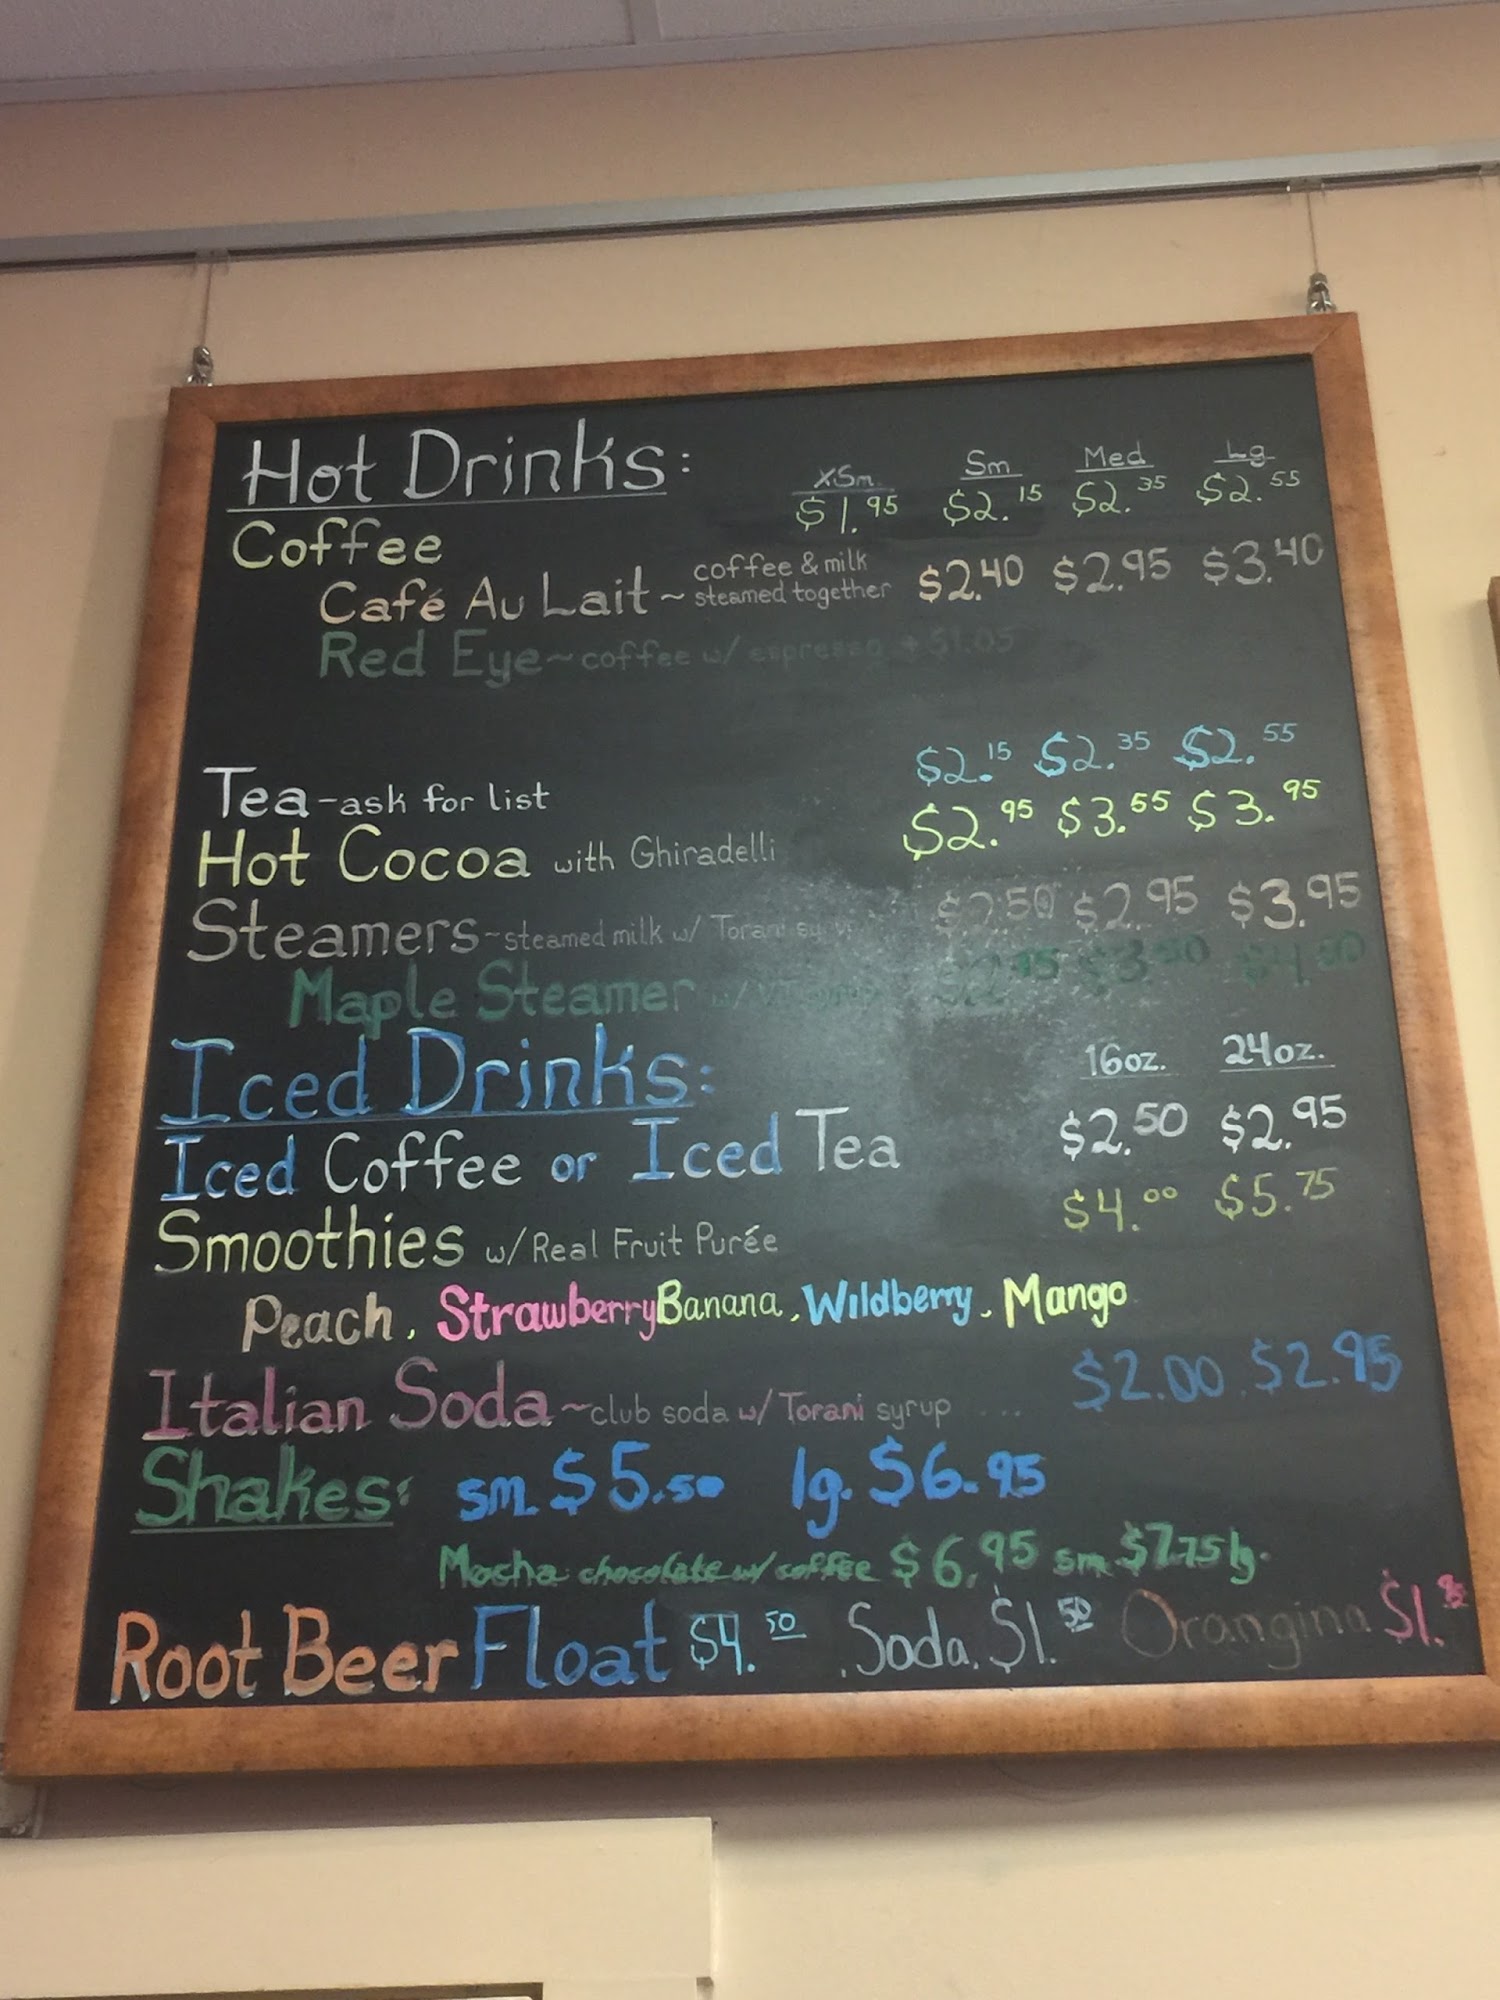 Hot Drinks: XSm Sm Med Lg
Coffee $1.95 $2.15 $2.35 $2.55
Café Au Lait ~ coffee & milk steamed together $2.40 $2.95 $3.40
Red Eye ~ coffee w/ espresso + $1.05
Tea - ask for list $2.15 $2.35 $2.55
Hot Cocoa with Ghiradelli $2.95 $3.55 $3.95
Steamers ~ steamed milk w/ Torani $2.50 $2.95 $3.95
Maple Steamer w/ $3.50 $4.50
Iced Drinks: 16oz. 24oz.
Iced Coffee or Iced Tea $2.50 $2.95
Smoothies w/ Real Fruit Purée $4.00 $5.75
Peach, Strawberry Banana, Wildberry, Mango
Italian Soda ~ club soda w/ Torani syrup ... $2.00 $2.95
Shakes: sm. $5.50 lg. $6.95
Mocha chocolate w/ coffee $6.95 sm $7.75 lg.
Root Beer Float $4.50 Soda $1.50 Orangina